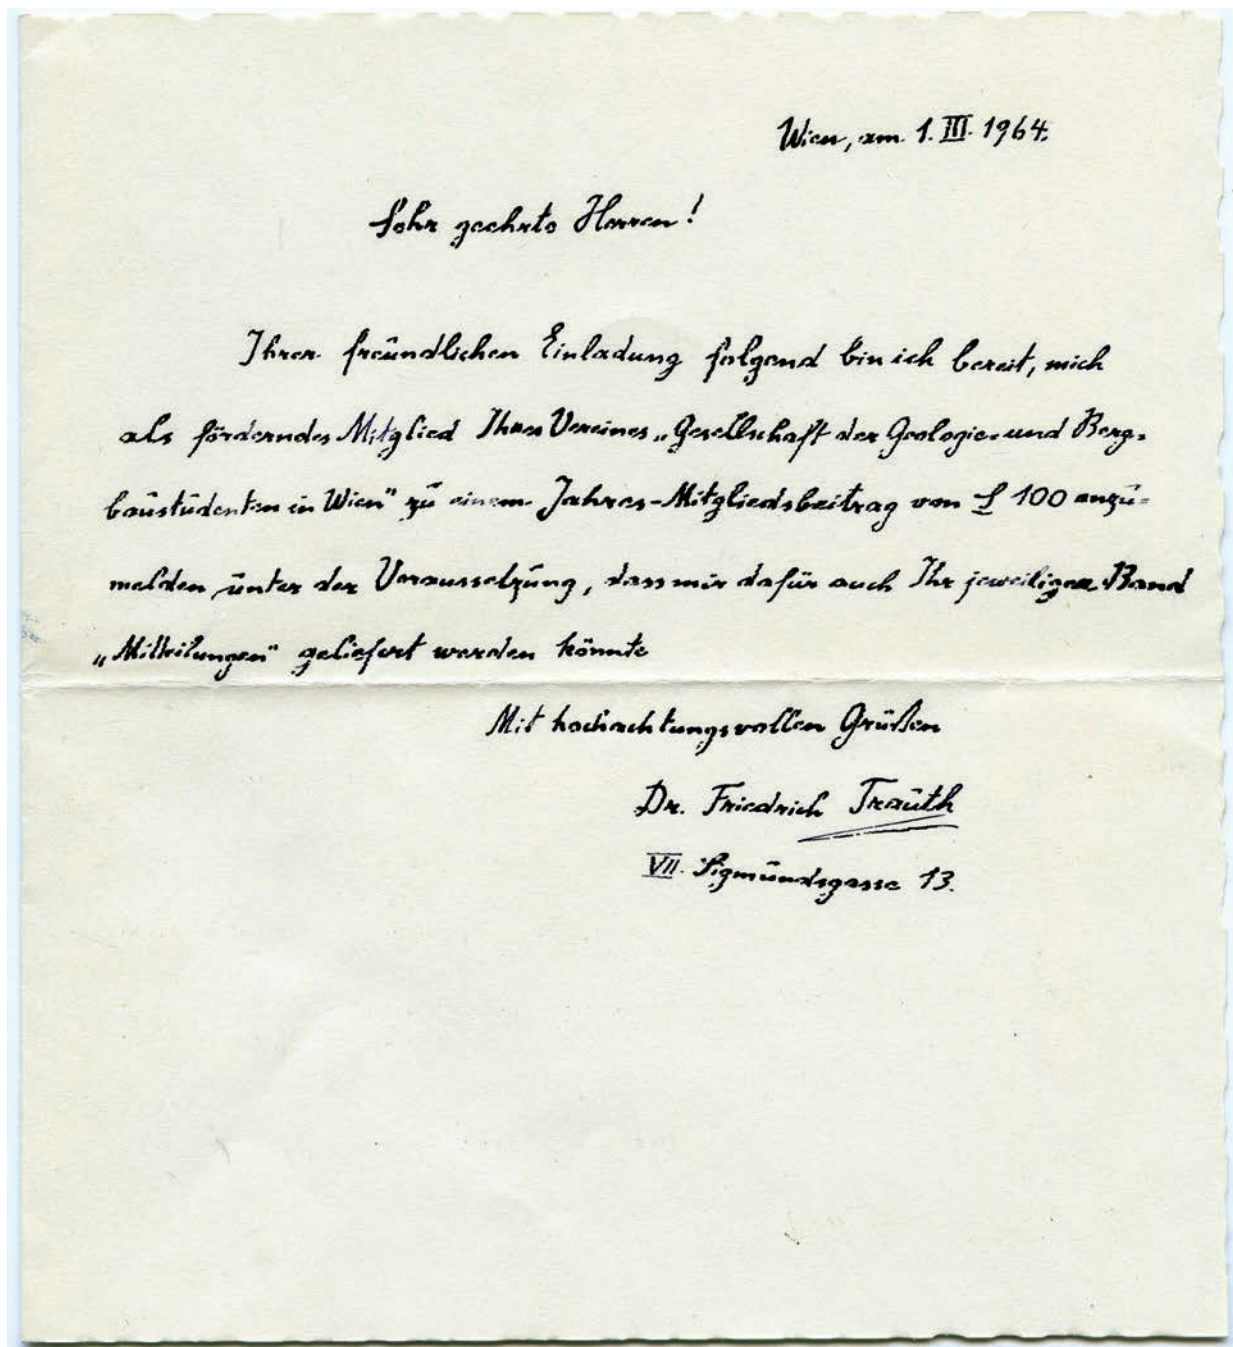 Wien, am 1. III. 1964.
Sehr geehrte Herren!
Ihrer freundlichen Einladung folgend bin ich bereit, mich
als förderndes Mitglied Ihres Vereines „Gesellschaft der Geologie- und Berg-
baustudenten in Wien" zu einem Jahres-Mitgliedsbeitrag von S 100 anzu-
melden unter der Voraussetzung, dass mir dafür auch Ihr jeweiliger Band
„Mitteilungen" geliefert werden könnte
Mit hochachtungsvollen Grüßen
Dr. Friedrich Trauth
VII. Sigmundsgasse 13.